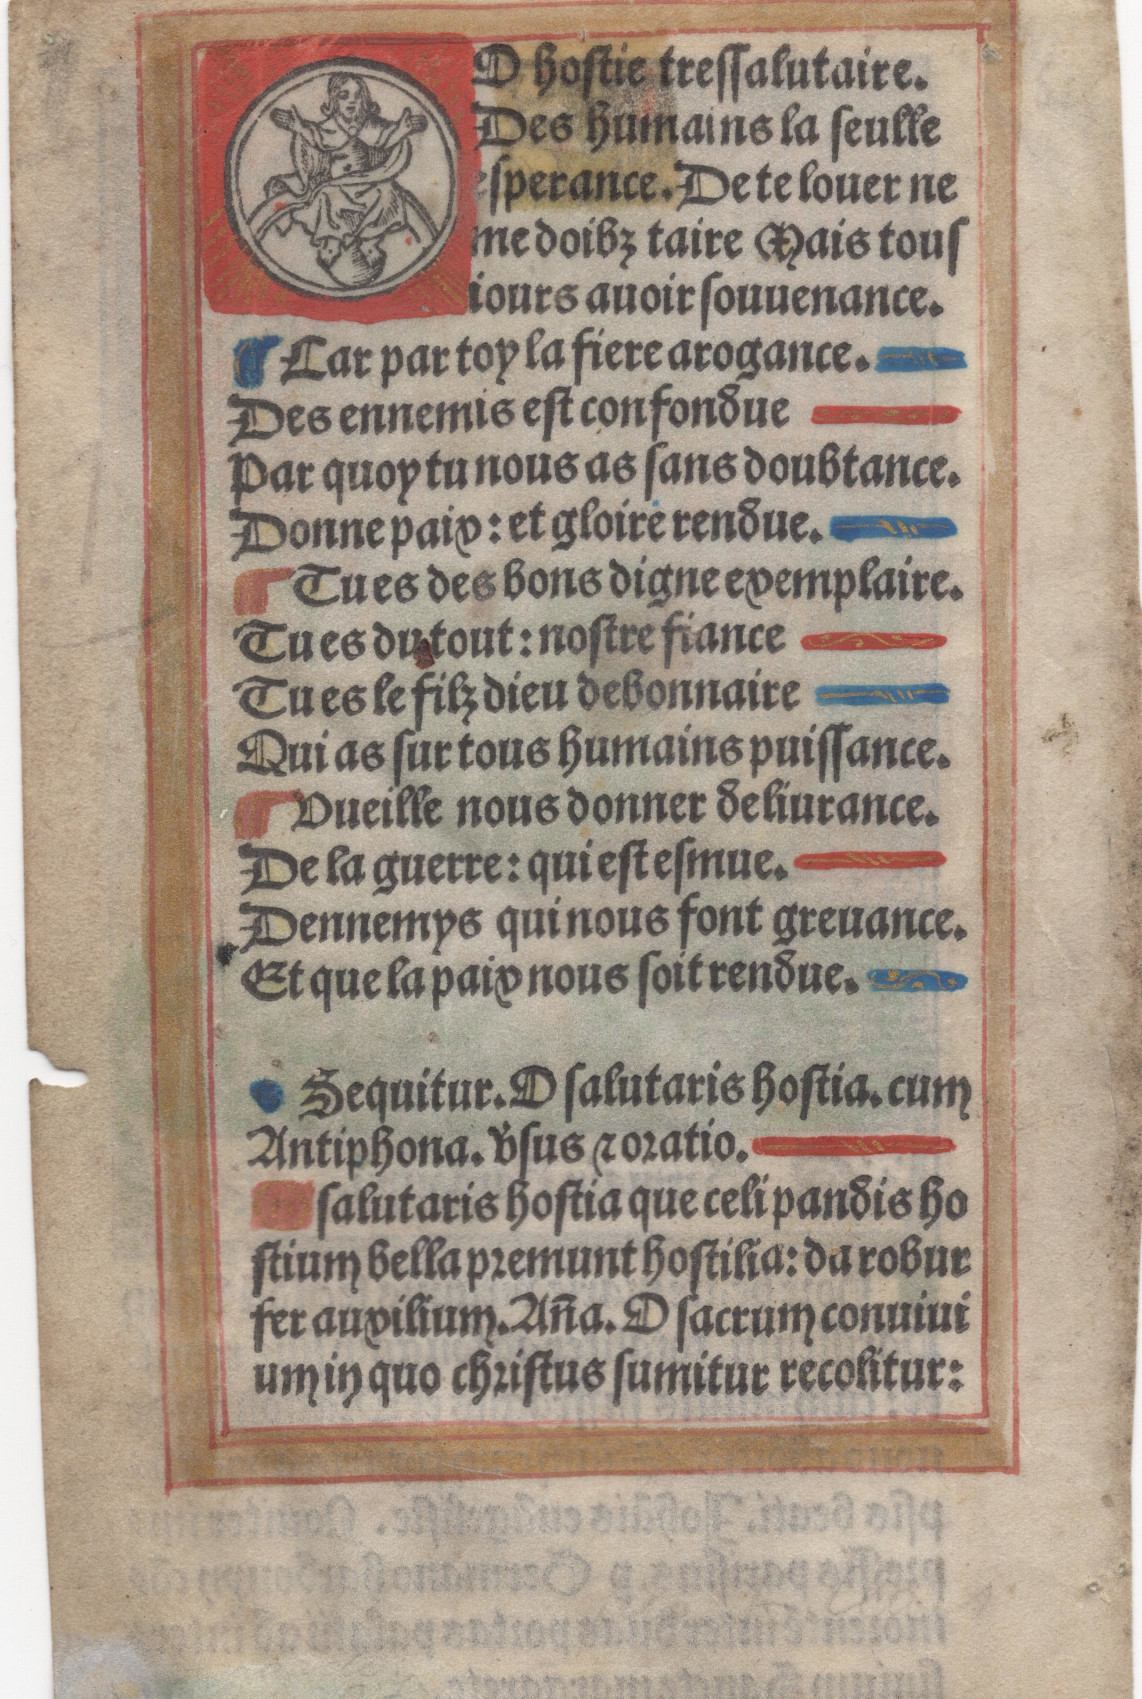 O hostie tressalutaire.
Des humains la seulle
esperance. De te louer ne
me doibz taire Mais tous
iours auoir souuenance.
¶ Car par toy la fiere arogance.
Des ennemis est confondue
Par quoy tu nous as sans doubtance.
Donne paix : et gloire rendue.
Tu es des bons digne exemplaire.
Tu es du tout : nostre fiance
Tu es le filz dieu debonnaire
Qui as sur tous humains puissance.
Vueille nous donner deliurance.
De la guerre : qui est esmue.
Dennemys qui nous font greuance.
Et que la paix nous soit rendue.
Sequitur. O salutaris hostia. cum
Antiphona. v̄sus ⁊ oratio.
salutaris hostia que celi pandis ho
stium bella premunt hostilia: da robur
fer auxilium. An̄a. O sacrum conuiui
um in quo christus sumitur recolitur: